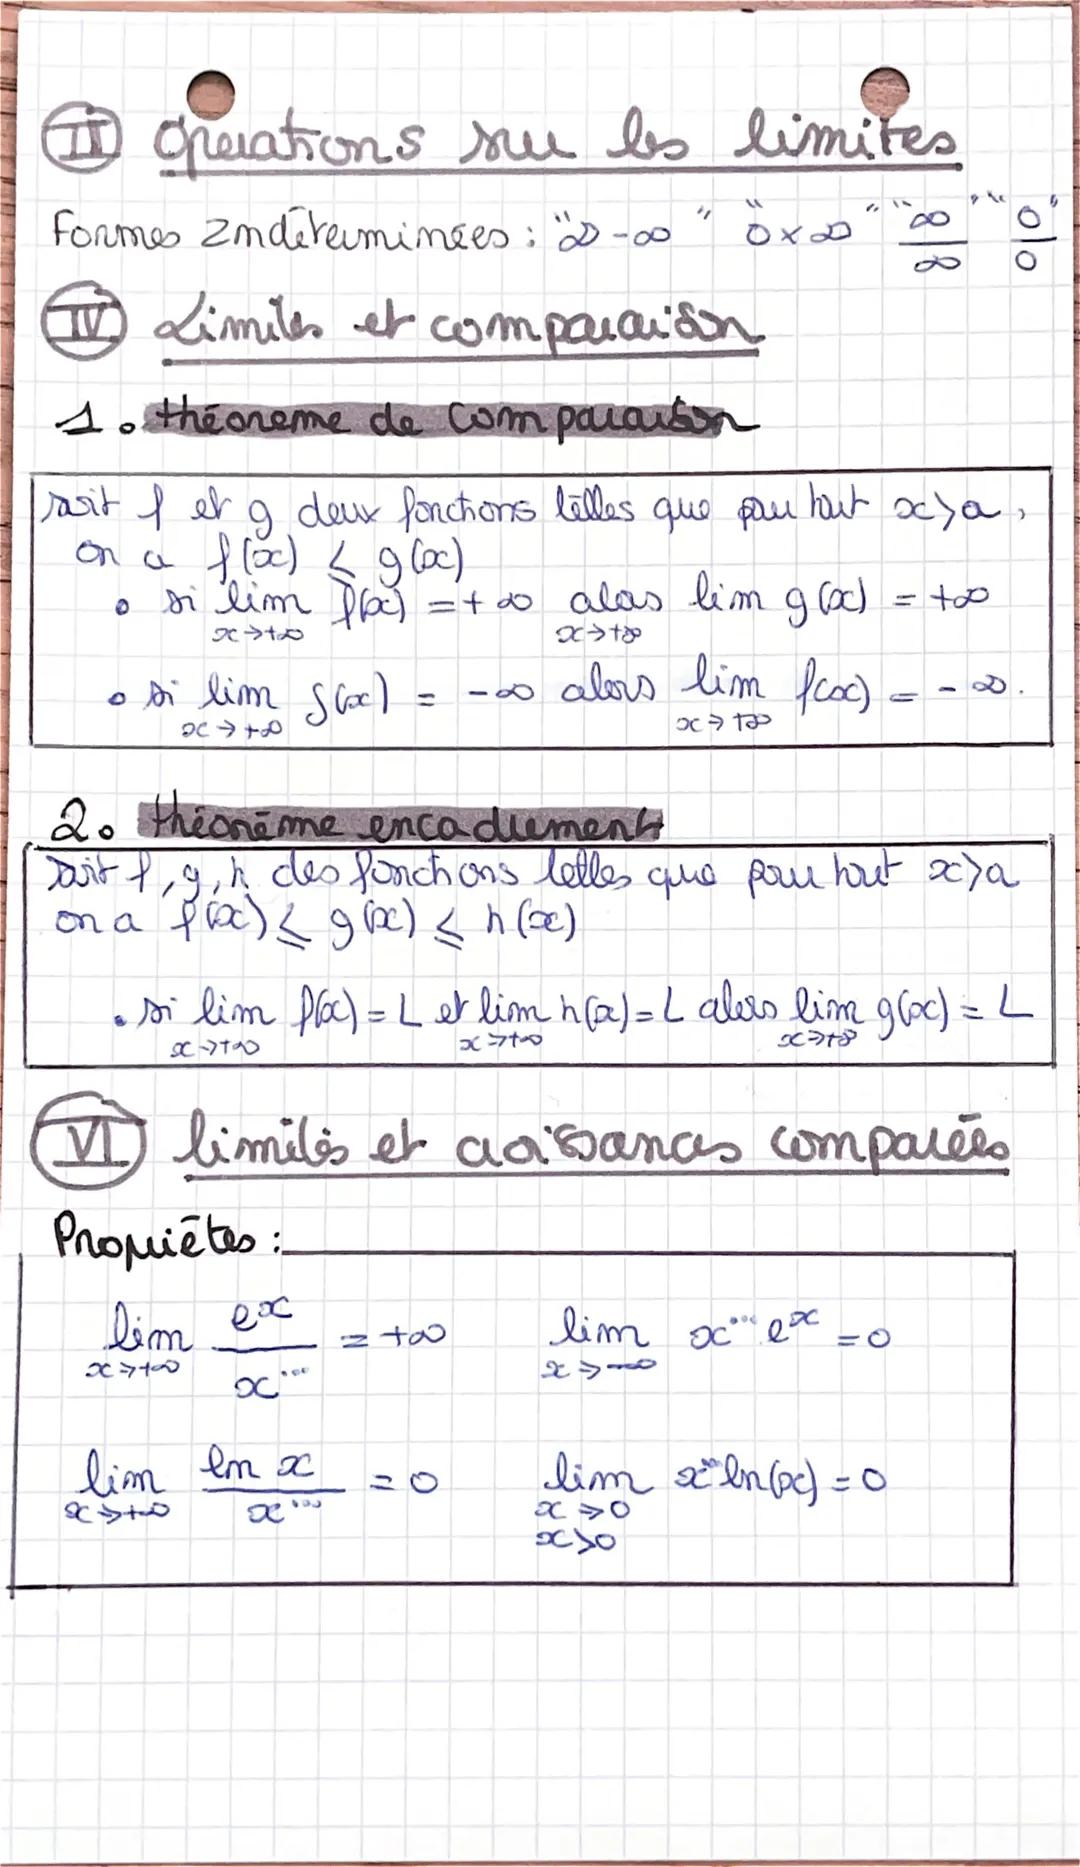 II opérations sur les limites
Formes Indéterminées : "∞ - ∞" "0 x ∞" "∞/∞" "0/0"
IV Limites et comparaison
1. théorème de comparaison
soit f et g deux fonctions telles que pour tout x > a,
on a f(x) ≤ g(x)
• si lim f(x) = +∞ alors lim g(x) = +∞
x→+∞ x→+∞
• si lim g(x) = -∞ alors lim f(x) = -∞.
x→+∞ x→+∞
2. théorème encadrement
soit f, g, h des fonctions telles que pour tout x > a
on a f(x) ≤ g(x) ≤ h(x)
• si lim f(x) = L et lim h(x) = L alors lim g(x) = L
x→+∞ x→+∞ x→+∞
VI limites et croissances comparées
Propriétés :
lim e^x / x^... = +∞ lim x^... e^x = 0
x→+∞ x→-∞
lim ln x / x^... = 0 lim x^... ln(x) = 0
x→+∞ x→0
x>0